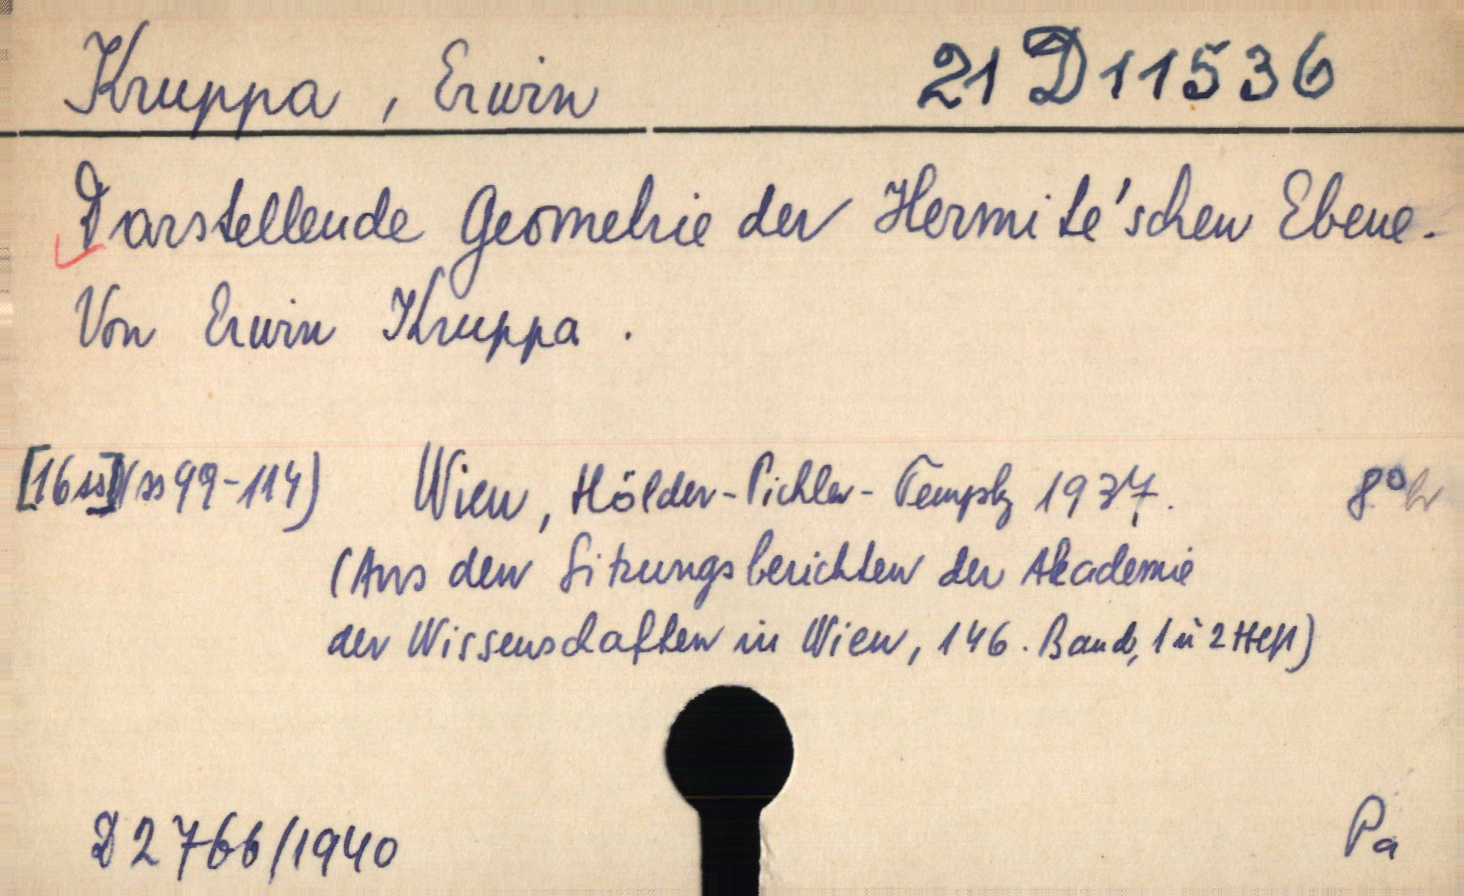 Kruppa, Erwin 21 D 11536
Darstellende Geometrie der Hermite'schen Ebene.
Von Erwin Kruppa.
[16 ss] (ss 99-114) Wien, Hölder-Pichler-Tempsky 1937. 8°
(Aus den Sitzungsberichten der Akademie
der Wissenschaften in Wien, 146. Band, 1 u 2 Heft)
D 2766/1940 Pa